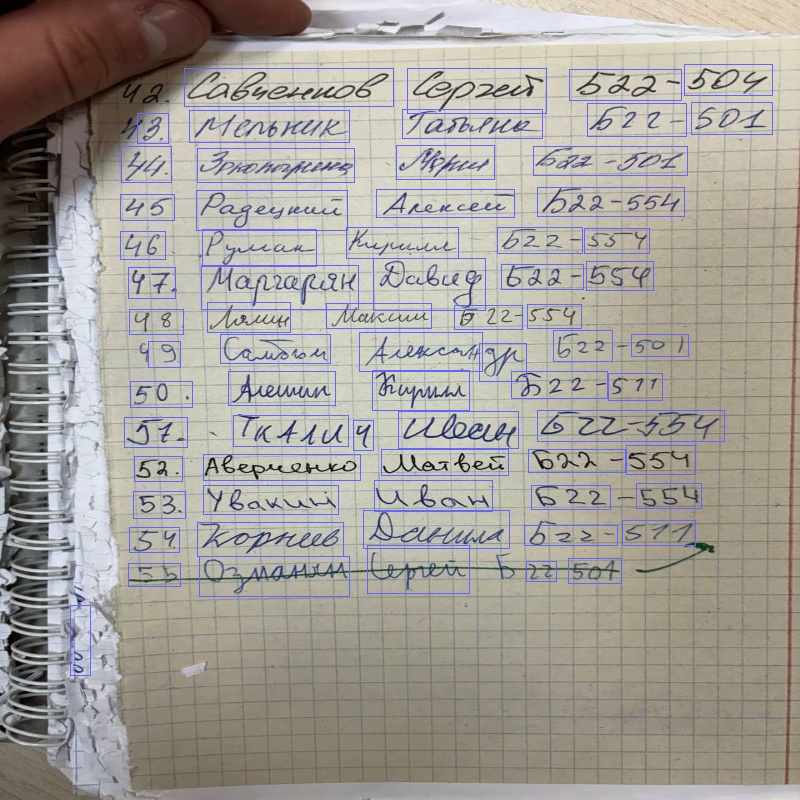 42. Савченков Сергей Б22-504
43. Мельник Татьяна Б22-501
44. Мария Б22-501
45 Радецкий Алексей Б22-554
46 Руман Кирилл Б22-554
47. Маргарян Давид Б22-554
48 Лямин Максим Б22-554
49 Самбюм Александр Б22-501
50. Алешин Кирилл Б22-511
51. Ткалич Иван Б22-554
52. Аверченко Матвей Б22-554
53. Увакин Иван Б22-554
54. Корнев Данила Б22-511
55 Озманин Сергей Б 22 501